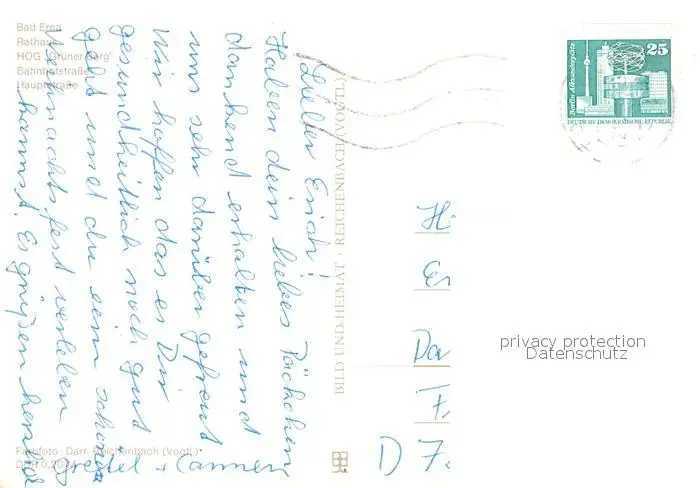 Bad Erna
Rathaus
HOG "Grüner Berg"
Bahnhofstraße
Hauptstraße
Lieber Erich!
Haben dein liebes Päckchen
dankend erhalten und
uns sehr darüber gefreut
Wir hoffen das es Dir
gesundheitlich noch gut
geht und du ein schönes
Weihnachtsfest verleben
kannst. Es grüßen herzlich
Gretel + Carmen
Farbfoto: Darr, Reichenbach (Vogtl.)
BILD UND HEIMAT · REICHENBACH (VOGTL)
25
Berlin, Alexanderplatz
DEUTSCHE DEMOKRATISCHE REPUBLIK
Hi
Er
Da
F
D 7
privacy protection
Datenschutz